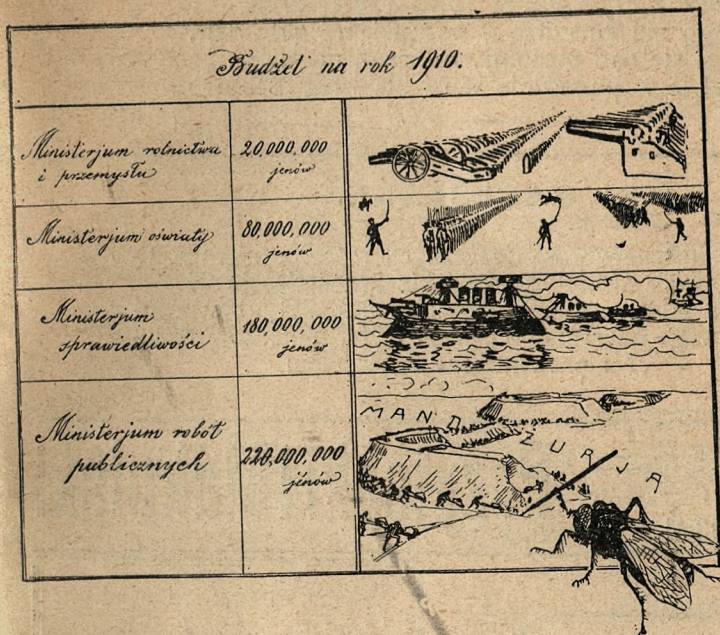 Budżet na rok 1910.
Ministerjum rolnictwa
i przemysłu
20,000,000
jenów
Ministerjum oświaty
80,000,000
jenów
Ministerjum
sprawiedliwości
180,000,000
jenów
Ministerjum robót
publicznych
220,000,000
jenów
MANDŻURJA